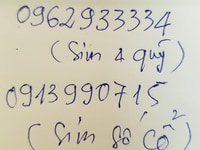 0962933334
(Sim 4 quý)
0913990715
(Sim số cổ²